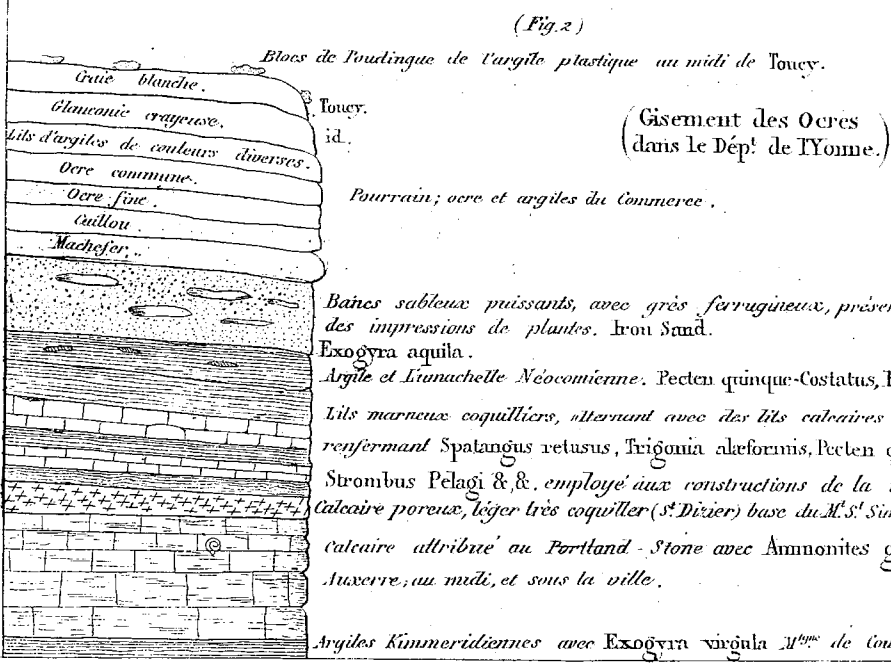 (Fig. 2)
Blocs de Poudingue de l'argile plastique au midi de Toucy.
Craie blanche.
Glauconie crayeuse.
Toucy.
Lits d'argiles de couleurs diverses.
id.
(Gisement des Ocres
dans le Dép.t de l'Yonne.)
Ocre commune.
Ocre fine.
Pourrain; ocre et argiles du Commerce.
Caillou.
Machefer.
Bancs sableux puissants, avec grès ferrugineux, présen
des impressions de plantes. Iron Sand.
Exogyra aquila.
Argile et Lumachelle Néocomienne. Pecten quinque-Costatus,
Lits marneux coquilliers, alternant avec des lits calcaires
renfermant Spatangus retusus, Trigonia alæformis, Pecten
Strombus Pelagi &,&. employé aux constructions de la
Calcaire poreux, léger très coquiller (St Dizier) base du M.t S.t Sim
Calcaire attribué au Portland-Stone avec Ammonites g
Auxerre; au midi, et sous la ville.
Argiles Kimmeridiennes avec Exogyra virgula M.tgne de Cou